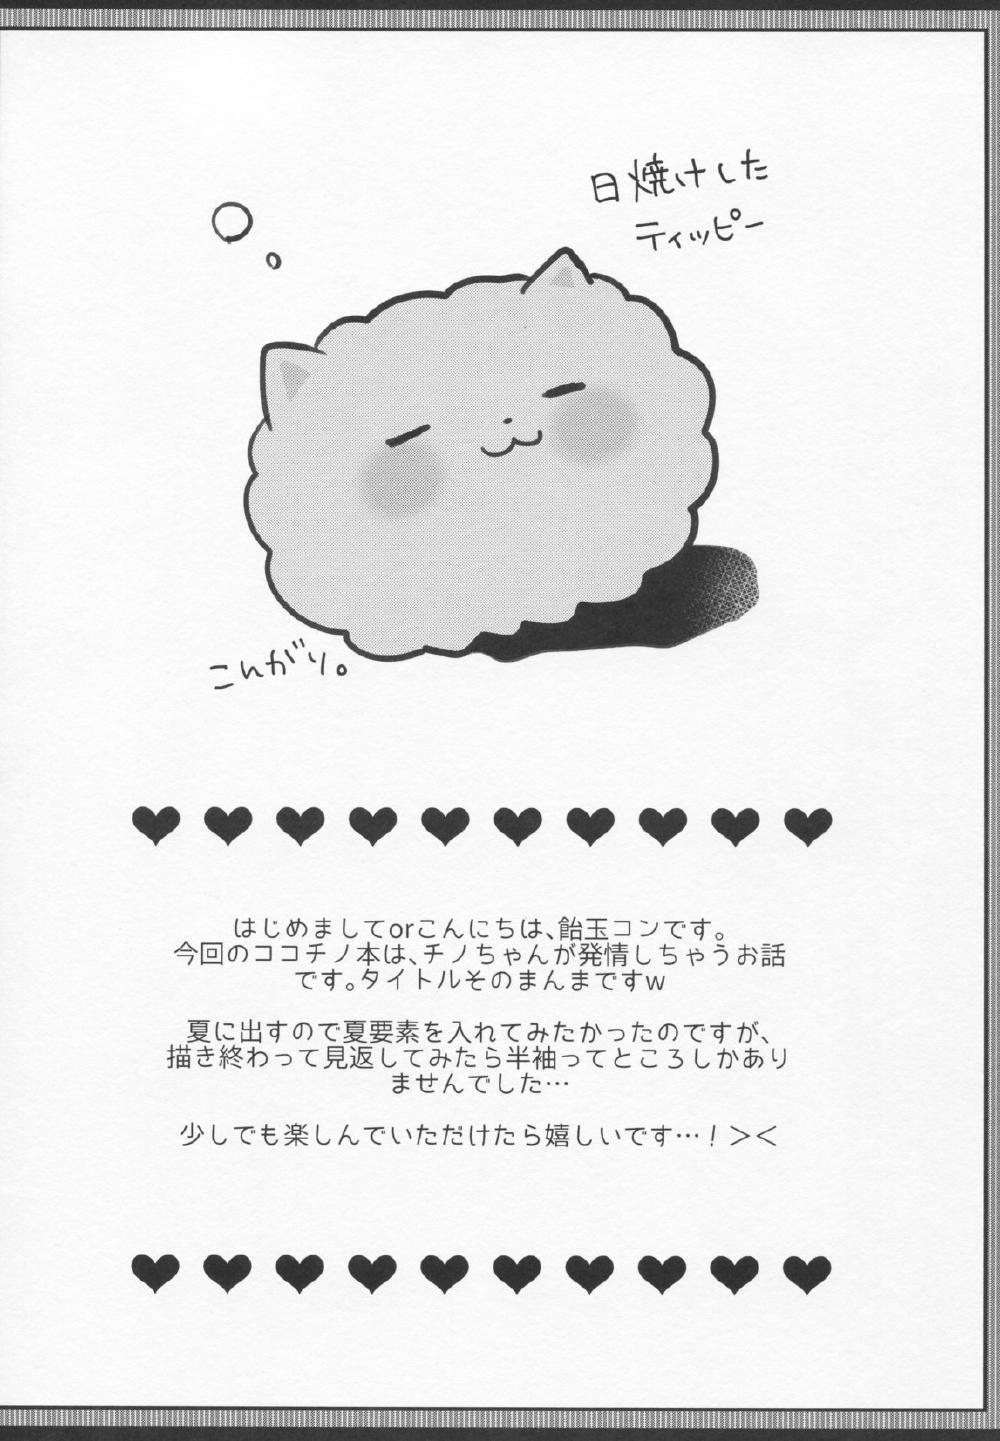 日焼けした
ティッピー
こんがり。
はじめましてorこんにちは、飴玉コンです。
今回のココチノ本は、チノちゃんが発情しちゃうお話
です。タイトルそのまんまですw
夏に出すので夏要素を入れてみたかったのですが、
描き終わって見返してみたら半袖ってところしかあり
ませんでした…
少しでも楽しんでいただけたら嬉しいです…！＞＜